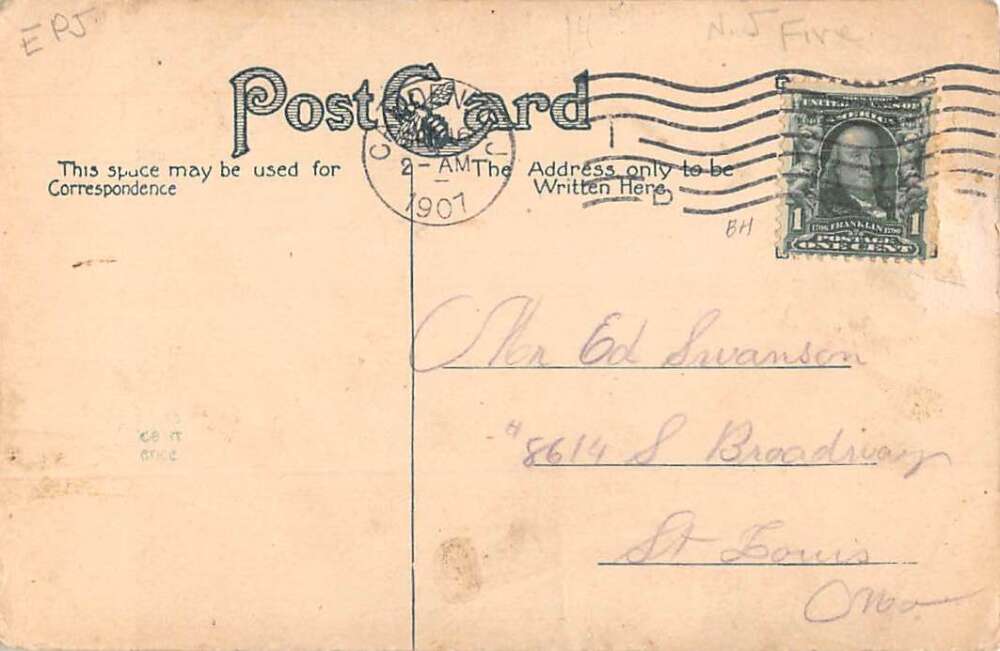 EPJ
14
N.J Fire
Post Card
CAMDEN, N.J.
2-AM
1907
This space may be used for
Correspondence
The Address only to be
Written Here
D
BH
UNITED STATES OF
AMERICA
1 1
1706 FRANKLIN 1790
POSTAGE
ONE CENT
Mr Ed Swanson
"8614 S Broadway
St Louis
Mo